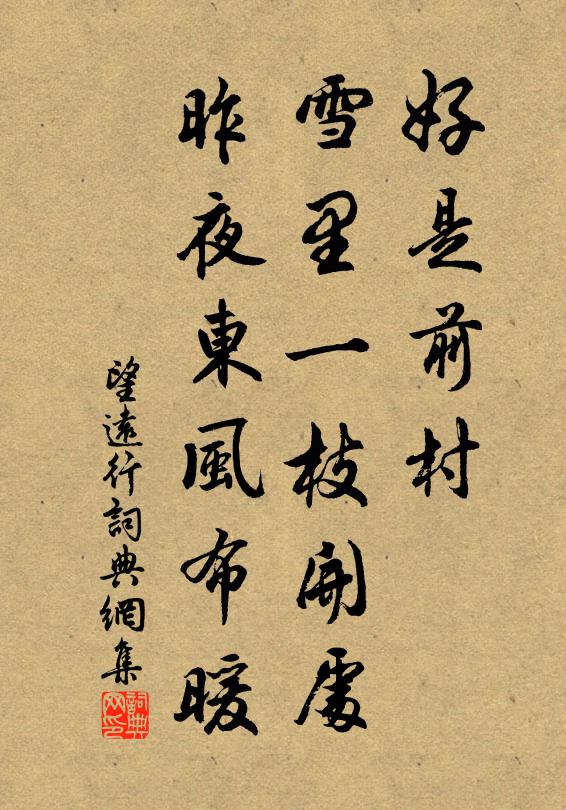 好是前村
雪里一枝開處
昨夜東風布暖
望遠行詞典網集
詞典网印